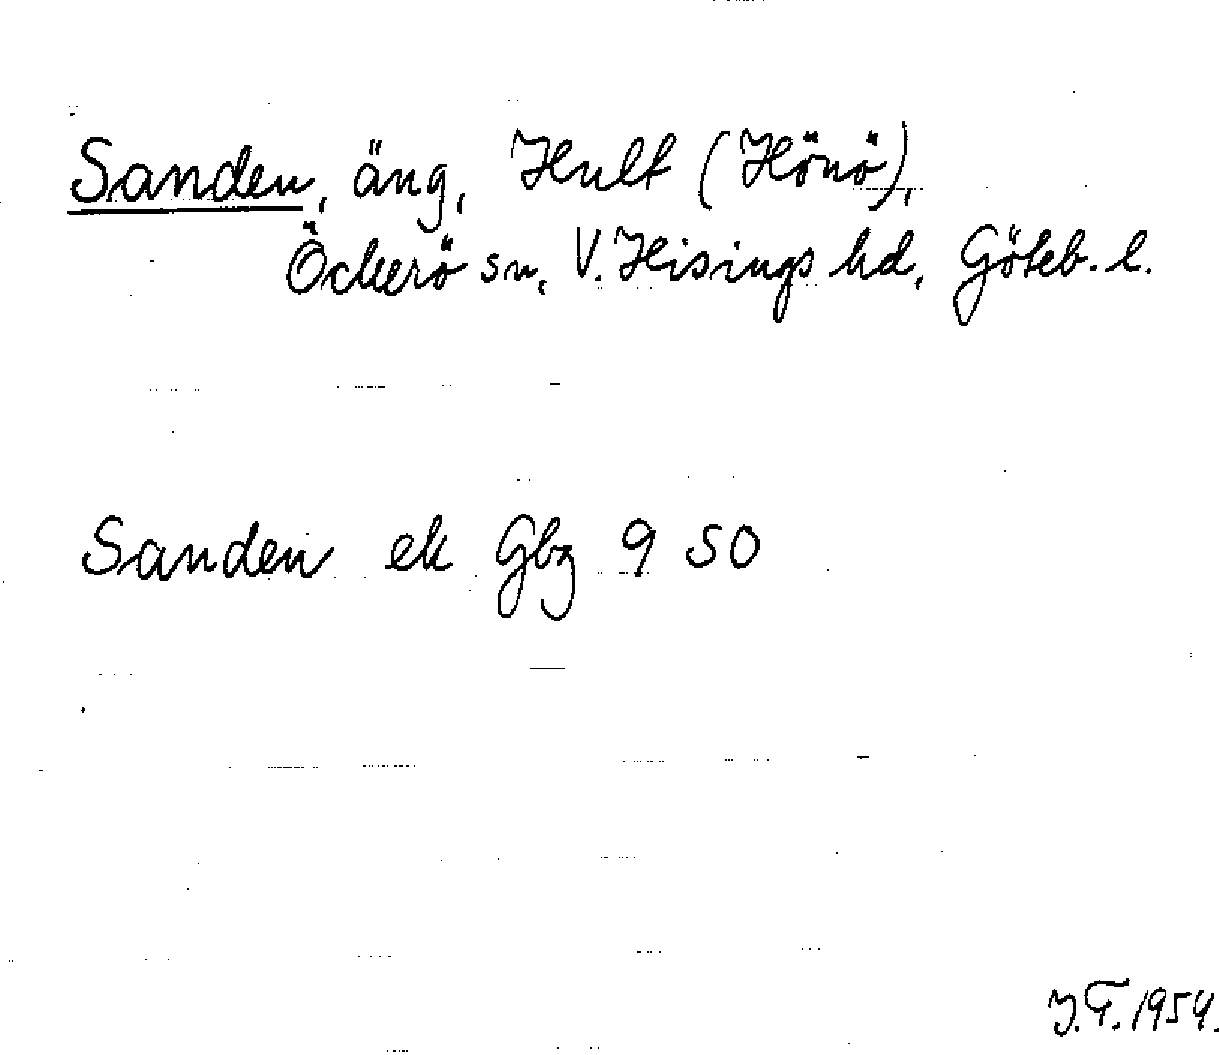 Sanden, äng, Hult (Hönö),
Öckerö sn, V. Hisings hd, Göteb. l.
Sanden ek Gbg 9 50
J.F. 1954.